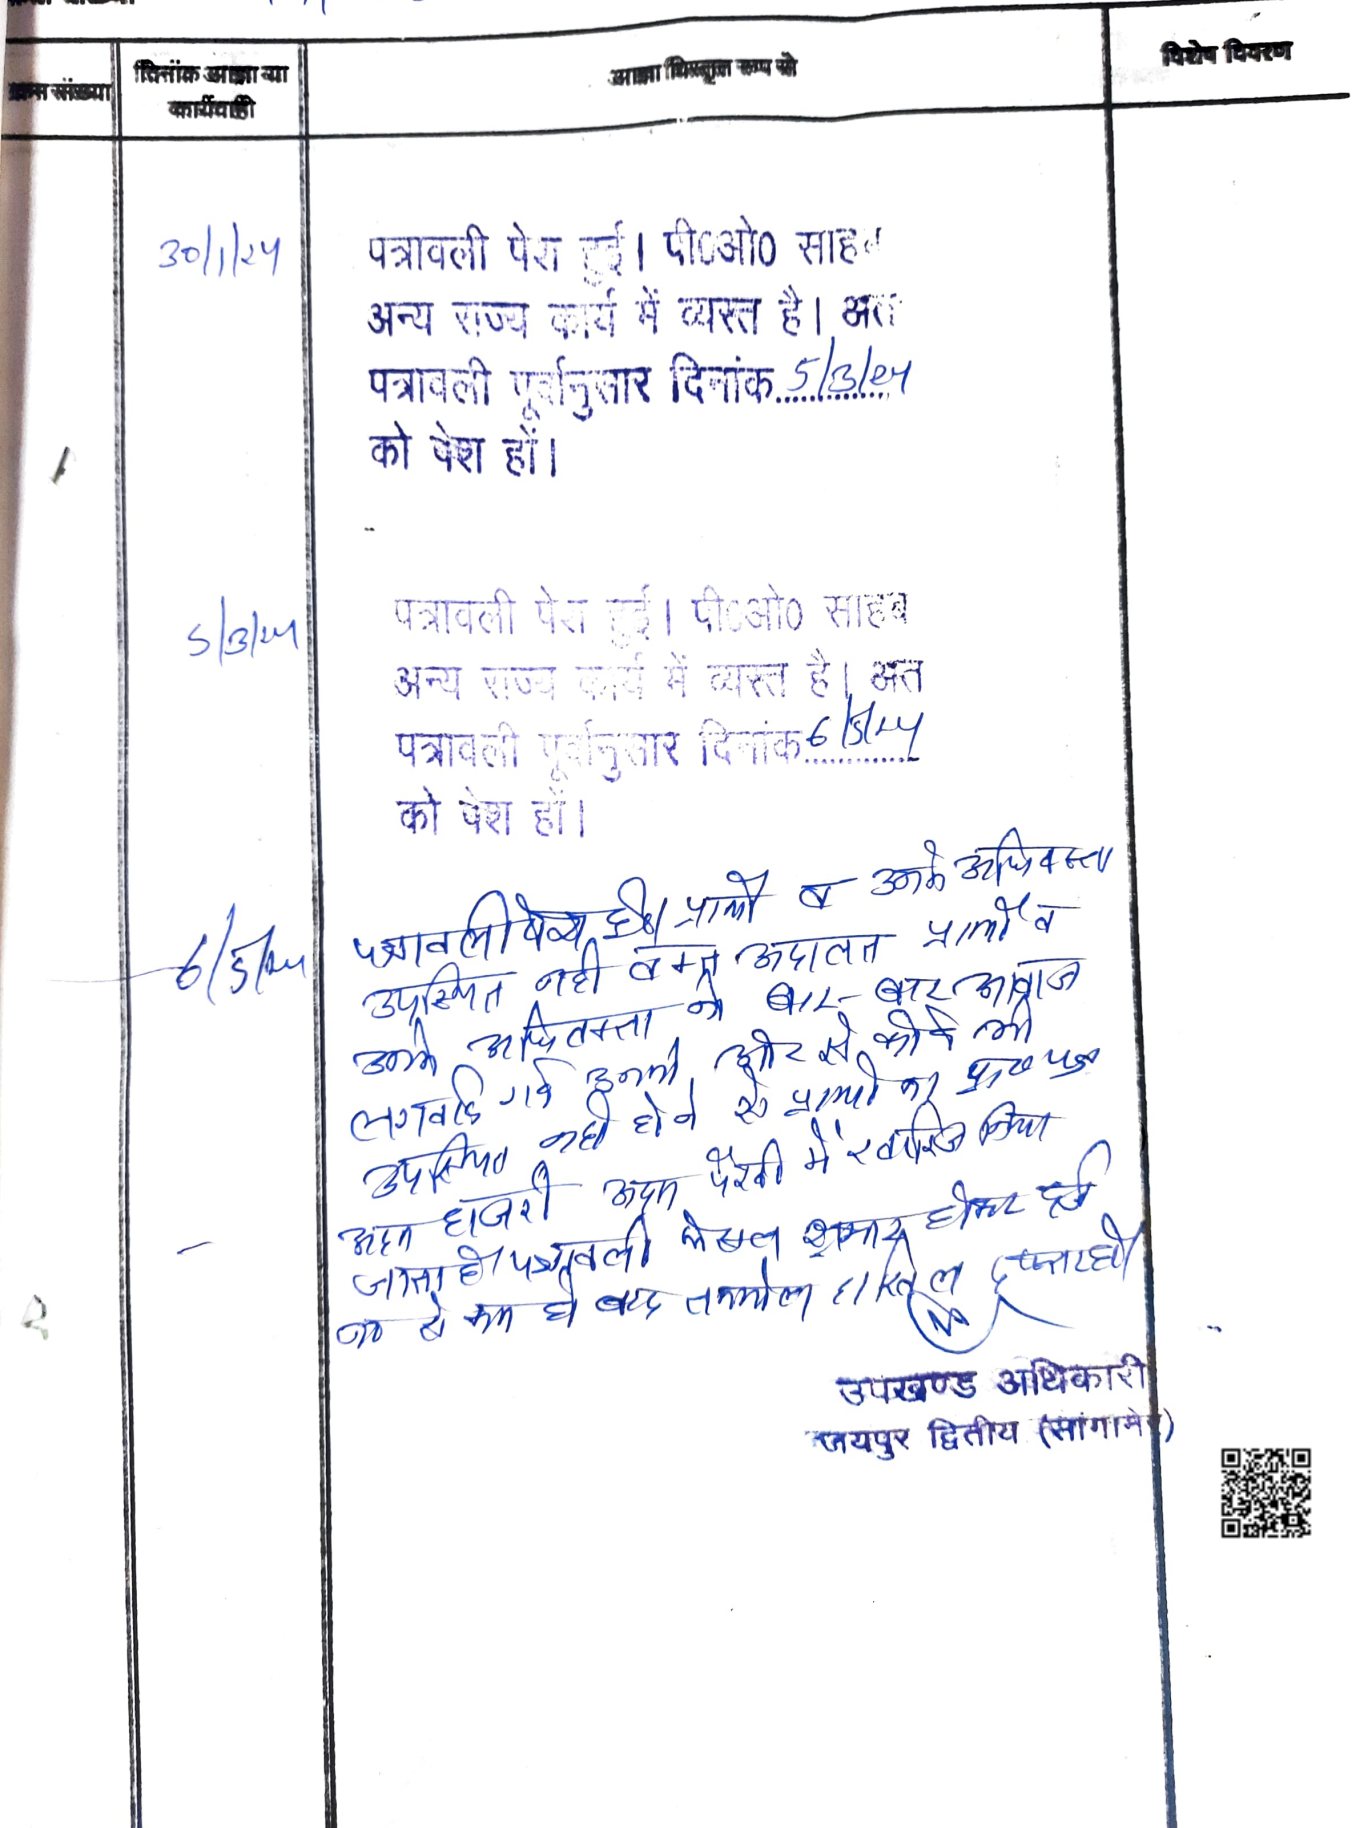 क्रम संख्या
दिनांक आज्ञा या
कार्यवाही
आज्ञा विस्तृत रूप से
विशेष विवरण
30/1/24
पत्रावली पेश हुई। पी0ओ0 साहब
अन्य राज्य कार्य में व्यस्त है। अत
पत्रावली पूर्वानुसार दिनांक 5/3/24
को पेश हों।
5/3/24
पत्रावली पेश हुई। पी0ओ0 साहब
अन्य राज्य कार्य में व्यस्त है। अत
पत्रावली पूर्वानुसार दिनांक 6/5/24
को पेश हों।
6/5/24
पत्रावली पेश हुई। प्रार्थी व उनके अधिवक्ता
उपस्थित नहीं वक्त अदालत प्रार्थी व
उनके अधिवक्ता को बार-बार आवाज
लगवाई गई इनकी ओर से कोई भी
उपस्थित नहीं होने से प्रार्थी का प्रा० पत्र
अदम हाजरी अदम पैरवी में खारिज किया
जाता है। पत्रावली फैसल शुमार होकर दर्ज
न० से कम हो बाद तकमील दाखिल दफ्तर हो।
उपखण्ड अधिकारी
जयपुर द्वितीय (सांगानेर)